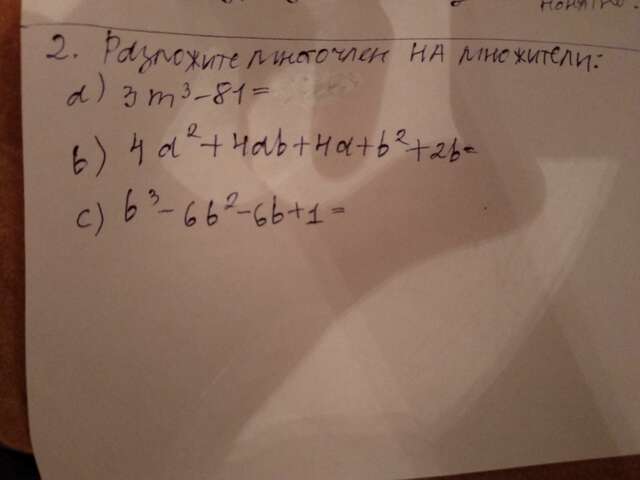 2. Разложите многочлен на множители:
a) 3m³-81=
b) 4a²+4ab+4a+b²+2b=
c) b³-6b²-6b+1=